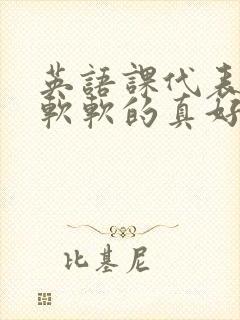 英語課代表
軟軟的真好
比基尼